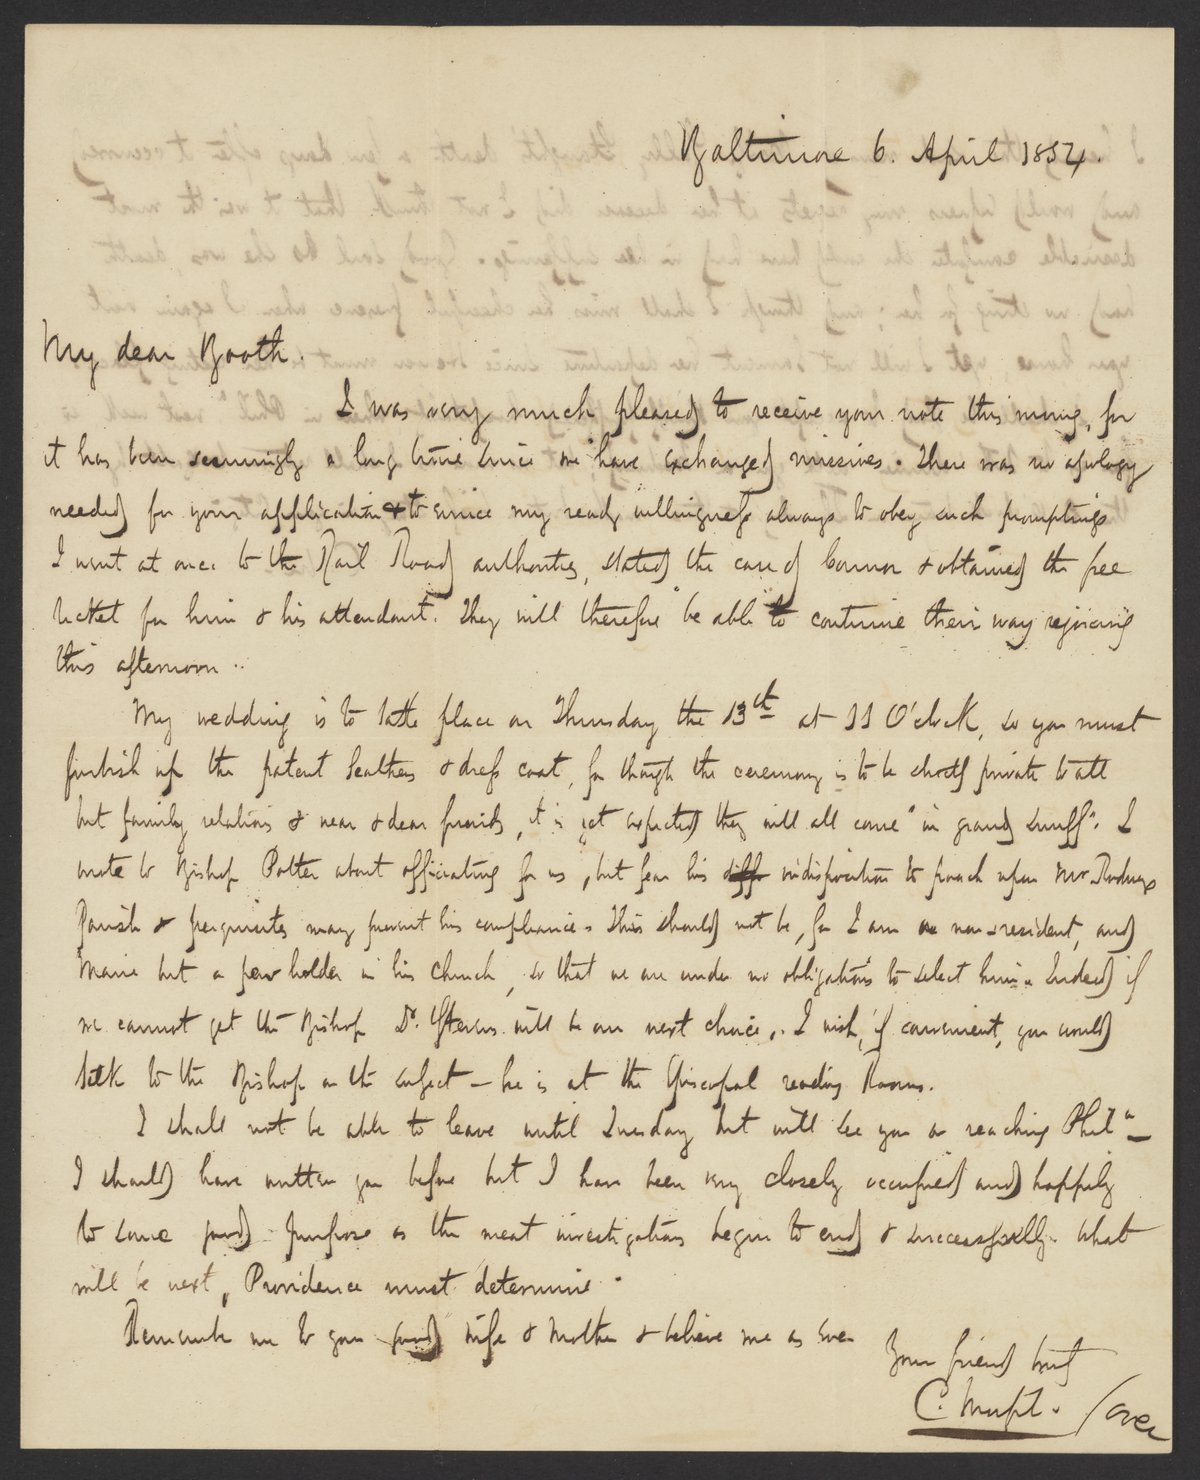 Baltimore 6. April 1854.
My dear Booth.
I was very much pleased to receive your note this morning, for
it has been seemingly a long time since we have exchanged missives. There was no apology
needed for your application & to evince my ready willingness always to obey such promptings
I went at once to the Rail Road authorities, stated the case of Connor & obtained the free
ticket for him & his attendant. They will therefore be able to continue their way rejoicing
this afternoon..
My wedding is to take place on Thursday the 13th at 11 O'clock, so you must
furbish up the patent leathers & dress coat, for though the ceremony is to be strictly private to all
but family relations & near & dear friends, it is yet expected they will all come "in grand snuff". I
wrote to Bishop Potter about officiating for us, but fear his indisposition to poach upon Mr.
Parish & perquisites may prevent his compliance. This should not be, for I am a non-resident, and
Marie but a pew holder in his church, so that we are under no obligations to select him. Indeed if
we cannot get the Bishop Dr. Stevens will be our next choice. I wish, if convenient, you would
talk to the Bishop on the subject — he is at the Episcopal reading Rooms.
I shall not be able to leave until Tuesday but will see you on reaching Phila
I should have written you before but I have been very closely occupied and happily
to some good purpose as the meat investigations begin to end & successfully. What
will be next, Providence must determine.
Remember me to your good wife & Mother & believe me as ever
Your friend truly
C. Morfit.
/over